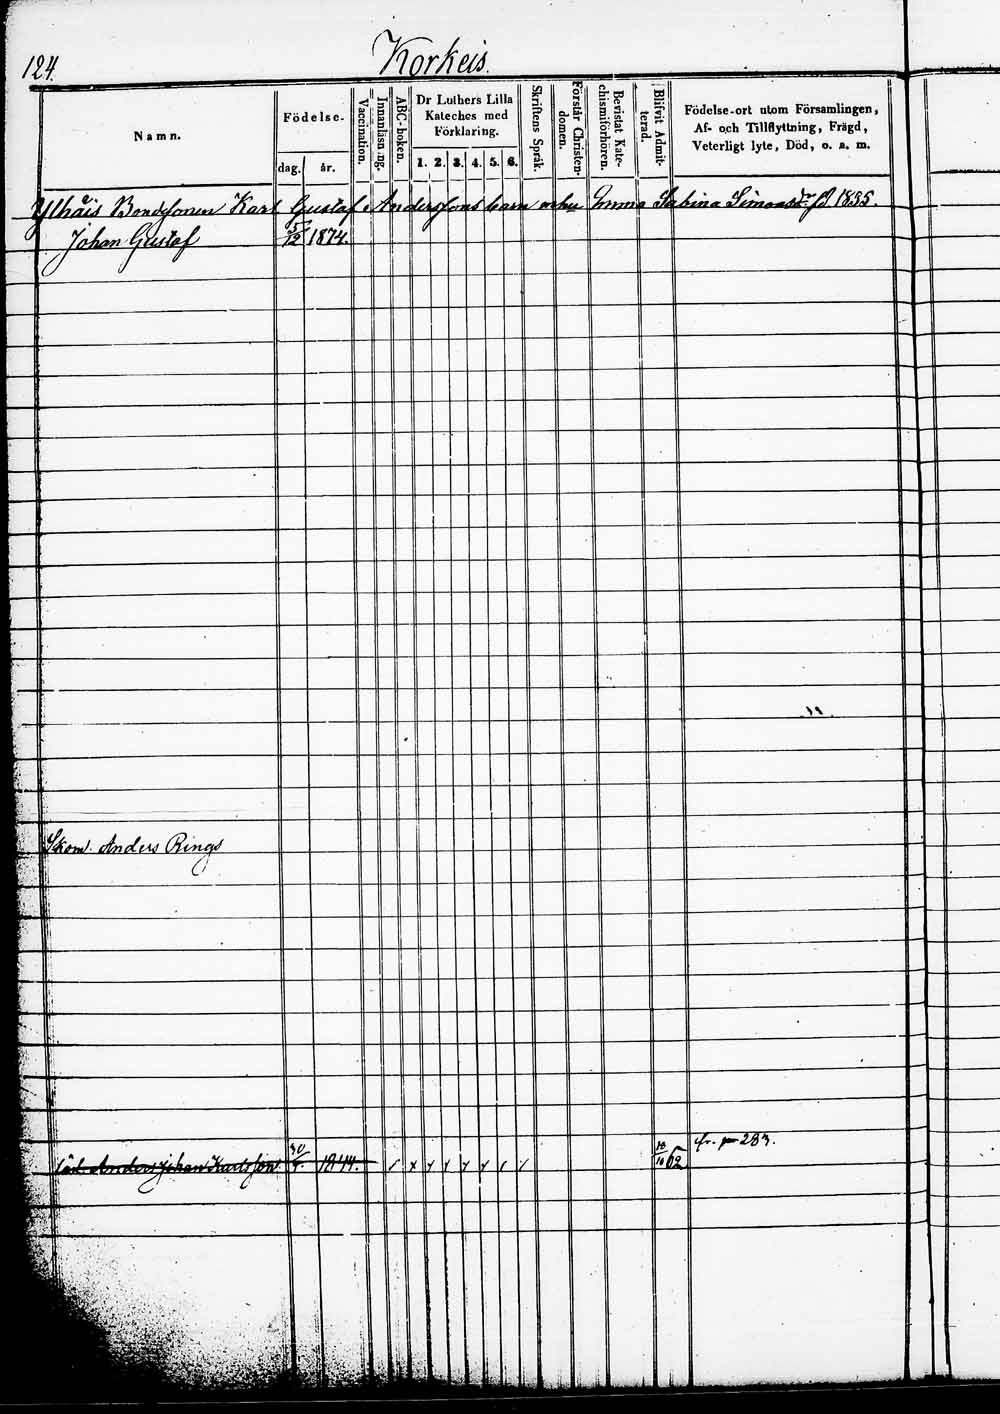 124.
Korkeis.
Namn.
Födelse-
dag. år.
Vaccination.
Innanläsning.
ABC-boken.
Dr Luthers Lilla
Kateches med
Förklaring.
1. 2. 3. 4. 5. 6.
Skriftens Språk.
Förstår Christen-
domen.
Bevistat Kate-
chismiförhören.
Blifvit Admit-
terad.
Födelse-ort utom Församlingen,
Af- och Tillflyttning, Frägd,
Veterligt lyte, Död, o. s. m.
Bondsonen Karl Gustaf Anderssons barn Emma Sabina Simonsdr fd 1855.
Johan Gustaf 5/12 1874.
Skom. Anders Rings
fr. p 283.
Anders Johan Karlsson 1844. 62